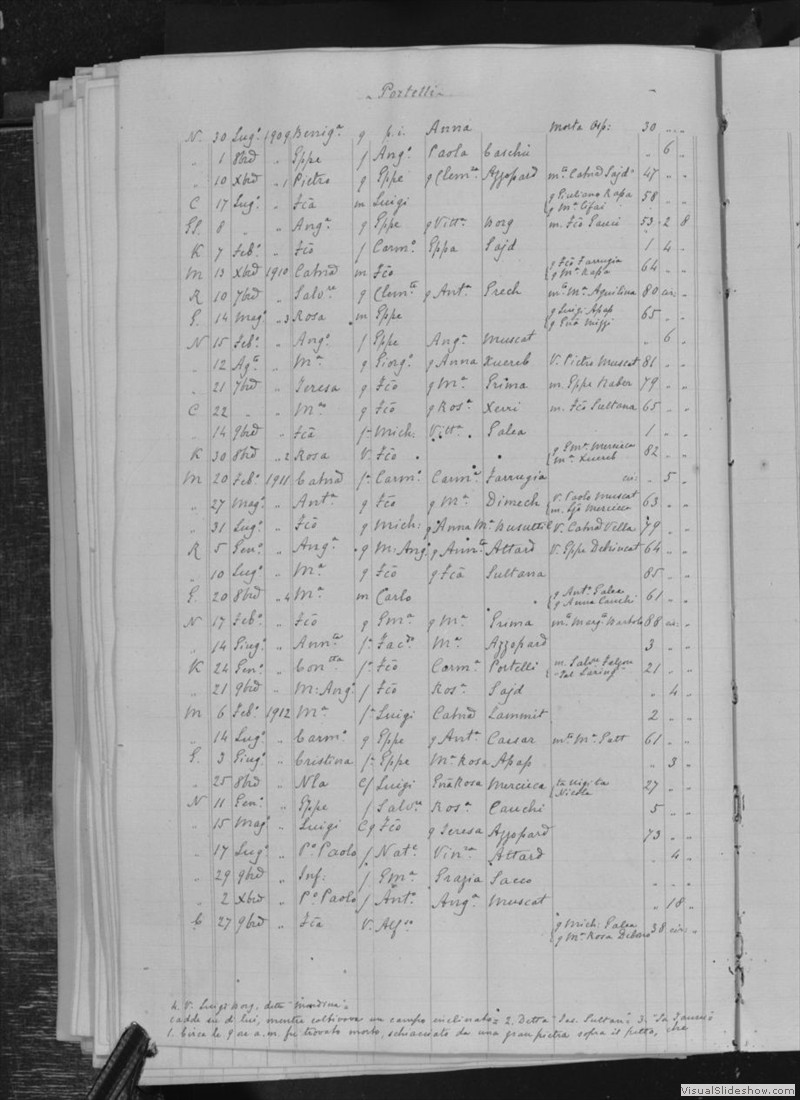 Portelli
N. 30 Lugº 1909 Benigª g p.i. Anna Morta Osp: 30 „ „
„ 1 8brd „ Eppe f Angº Paola Caschii „ 6 „
„ 10 Xbrd „1 Pietro g Eppe g Clemª Azzopard mª Catnd Sajd 47 „ „
C 17 Lugº „ Fcã m Luigi g Giuliano Rapa g Mª 58 „ „
8 „ „ Angª g Eppe g Vittª Borg m. Fcõ 53 2 8
K 7 Febº „ Fcõ f Carmº Eppa Sajd 1 4 „
M 13 Xbrd 1910 Catnd m Fcõ g Fcõ Farrugia g Mª Rapa 64 „ „
R 10 7brd „ Salvre g Clemte g Antª Grech mª Mª Aquilina 80 cir. „
G. 14 Magº „3 Rosa m Eppe g Luigi Apap 65 „ „
N 15 Febº „ Angº f Eppe Angª Muscat „ 6 „
„ 12 Agto „ Mª g Giorgº g Anna Xuereb V. Pietro Muscat 81 „ „
„ 21 7brd „ Teresa g Fcõ g Mª Grima m. Eppe 79 „ „
C 22 „ „ Mª g Fcõ g Rosª Xerri m. Fcõ Sultana 65 „ „
„ 14 9brd „ Fcã f Mich: Vittª Galea 1 „ „
K 30 8brd „2 Rosa V. Fcõ g Emª Mercieca Mª Xuereb 82 „ „
M 20 Febº 1911 Catnd f Carmº Carmª Farrugia cir: „ 5 „
„ 27 Magº „ Antª g Fcõ g Mª Dimech V. Paolo Muscat Mercieca 63 „ „
„ 31 Lugº „ Fcõ g Mich: g Anna Mª Busuttil V. Catnd Vella 79 „ „
R 5 Genº „ Angª g M: Angº g Annta Attard V. Eppe Debrincat 64 „ „
„ 10 Lugº „ Mª g Fcõ g Fcã Sultana 85 „ „
G. 20 8brd „4 Mª m Carlo g Antº Galea g Anna Cauchi 61 „ „
N 17 Febº „ Fcõ g Emª g Mª Grima mª Margª Bartolo 88 cir. „
„ 14 Giugº „ Annta f Mª Azzopard 3 „ „
K 24 Genº „ f Fcõ Carmª Portelli 21 „ „
„ 21 9brd „ M: Angª f Fcõ Rosª Sajd „ 4 „
M 6 Febº 1912 Mª f Luigi Catnd Cammit 2 „ „
„ 14 Lugº „ Carmº g Eppe g Antª Caesar mª Mª Gatt 61 „ „
G. 3 Giugº „ Cristina f Eppe Mª Rosa Apap „ 3 „
„ 25 8brd „ Nla C/ Luigi Gnã Rosa Mercieca 27 „ „
N 11 Genº „ Eppe f Salvre Rosª Cauchi 5 „ „
„ 15 Magº „ Luigi Cg Fcõ g Teresa Azzopard 73 „ „
„ 17 Lugº „ Pº Paolo f Natº Vincª Attard „ 4 „
„ 29 9brd „ Inf: f Emª Grazia Sacco „ „ „
„ 2 Xbrd „ Pº Paolo f Antº Angª Muscat „ 18 „
C 27 9brd „ Fcã V. g Mich: Galea g Mª Rosa Debono 38 cir: „
4. V. Luigi Borg. detta
cadde su di lui, mentre coltivava un campo inclinato; 2. Detta Sultani 3.
1. Circa le 9 a.m. fu trovato morto, schiacciato da una gran pietra sopra il petto, che
VisualSlideshow.com